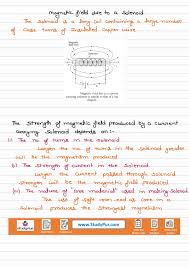 Magnetic field due to a Solenoid
The Solenoid is a long coil containing a large number
of close turns of Insulated Copper wire.
The Strength of magnetic field produced by a Current
Carrying Solenoid depends on :-
(i) The no of turns in the Solenoid
Larger the no of turns in the Solenoid greater
will be the magnetism produced
(ii) The Strength of current in the Solenoid
Larger the Current passed through Solenoid
Stronger will be the magnetic field produced
(iii) The nature of "Core material" used in making Solenoid
The use of soft iron used as core in a
Solenoid produces the Strongest magnetism.
www.StudyPur.com